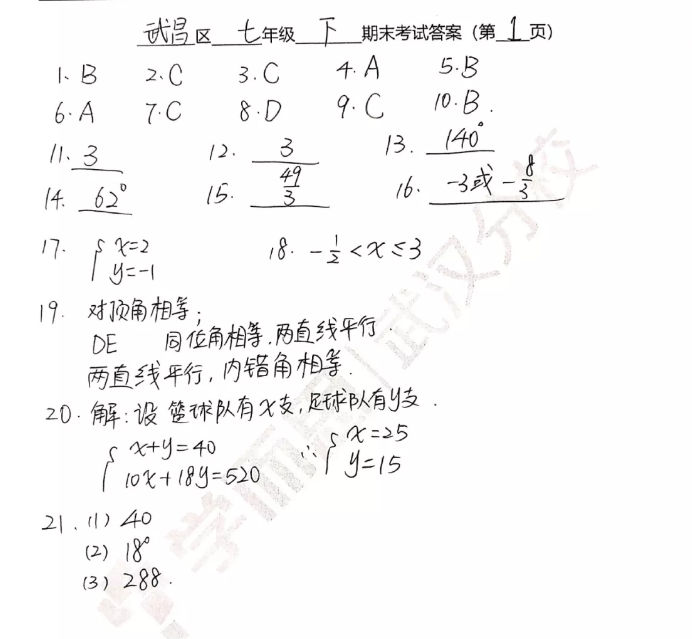 武昌区 七年级 下 期末考试答案（第1页）
1. B 2. C 3. C 4. A 5. B
6. A 7. C 8. D 9. C 10. B.
11. 3 12. 3 13. 140°
14. 62° 15. 49/3 16. -3或-8/3
17. { x=2 18. -1/2 < x ≤ 3
y=-1
19. 对顶角相等；
DE 同位角相等，两直线平行.
两直线平行，内错角相等.
20. 解：设篮球队有x支，足球队有y支.
{ x+y=40 ∴ { x=25
10x+18y=520 y=15
21. (1) 40
(2) 18°
(3) 288.
学而思|武汉分校